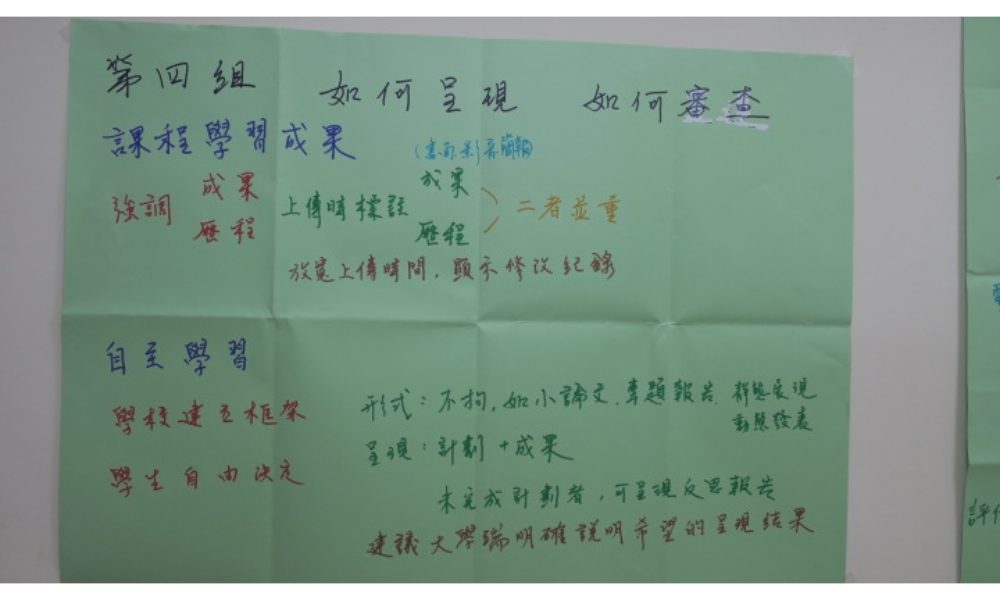 第四組 如何呈現 如何審查
課程學習成果
(書面影音簡報)
強調 成果 歷程
上傳時標註 成果 歷程 二者並重
放寬上傳時間,顯示修改紀錄
自主學習
學校建立框架
學生自由決定
形式:不拘,如小論文、專題報告、靜態展現
動態發表
呈現:計劃+成果
未完成計劃者,可呈現反思報告
建議大學端明確說明希望的呈現結果
評